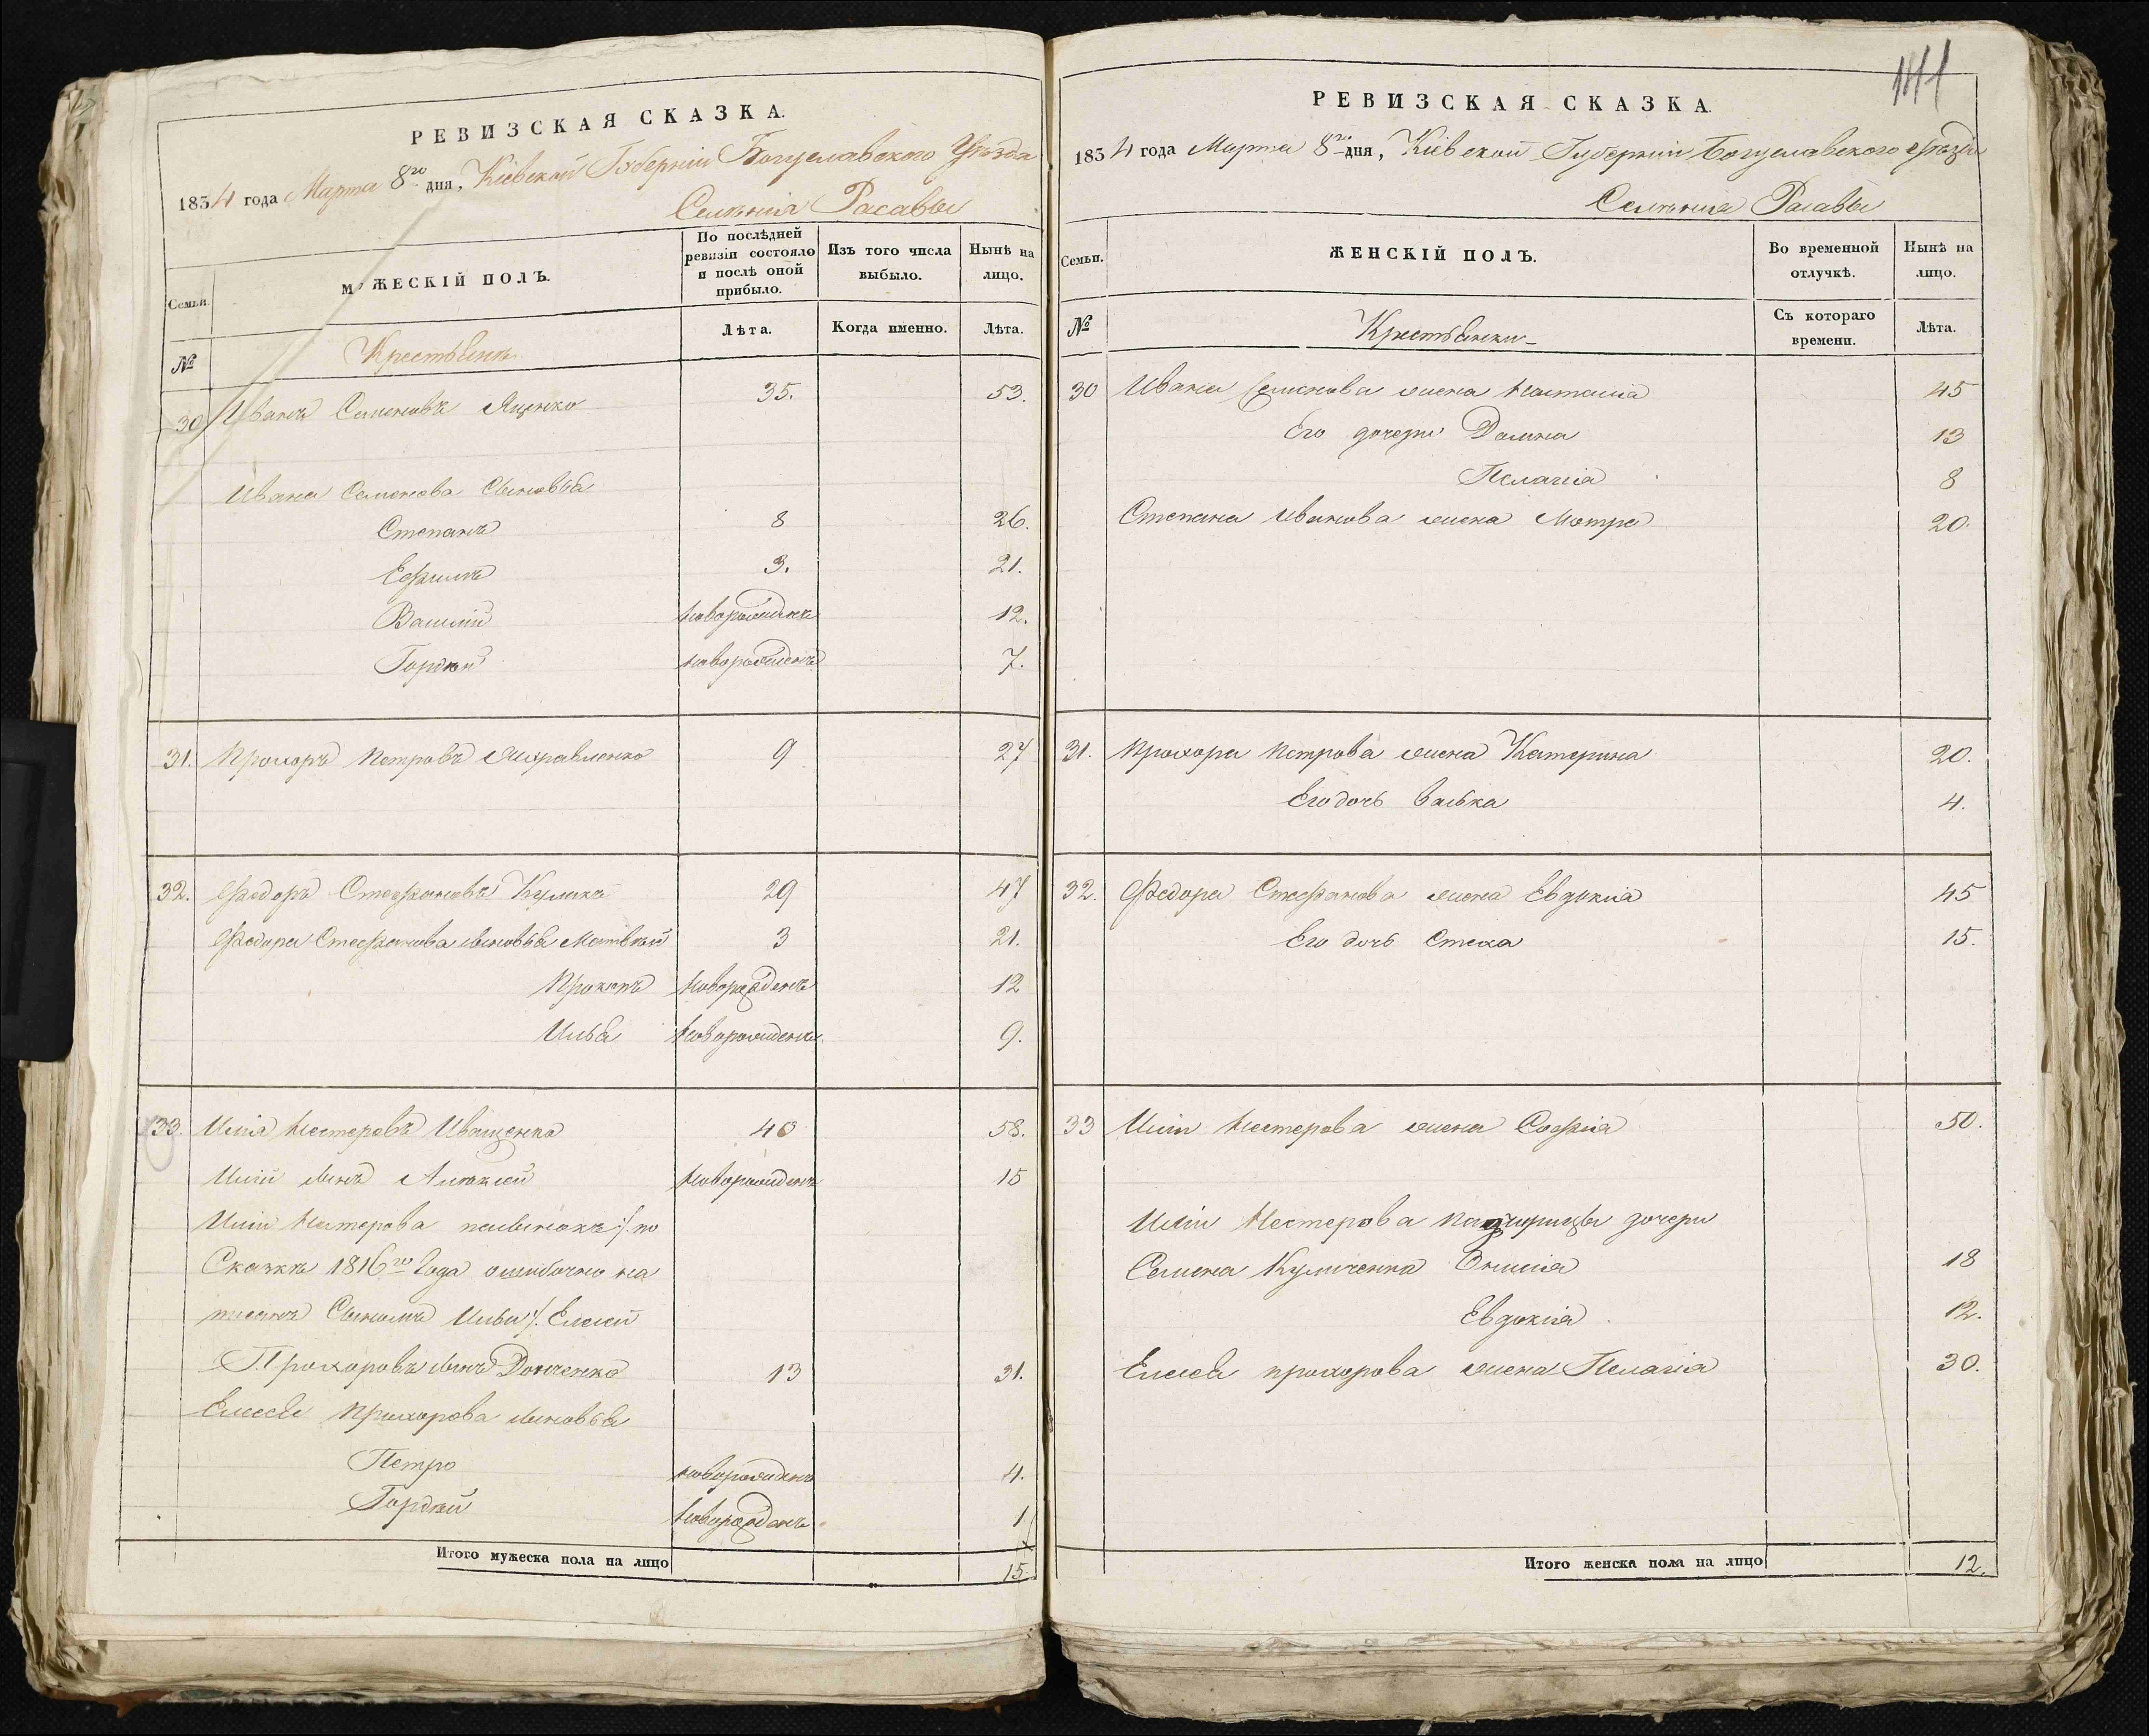 РЕВИЗСКАЯ СКАЗКА.
1834 года Марта 8го дня, Кіевской Губерніи Богуславского Уѣзда
Селенія Расавы
Семьи.
МУЖЕСКІЙ ПОЛЪ.
По послѣдней ревизіи состояло и послѣ оной прибыло.
Изъ того числа выбыло.
Нынѣ на лицо.
№
Крестьянъ
Лѣта.
Когда именно.
Лѣта.
30 Иванъ Семеновъ Яценко 35. 53.
Ивана Семенова Сыновья
Степанъ 8 26.
Ефимъ 3. 21.
Василій новорожденъ 12.
Гордѣй новорожденъ 7.
31. Прохоръ Петровъ Журавленко 9 27
32. Федоръ Стефановъ Куликъ 29 47
Федора Стефанова сыновья Матвѣй 3 21.
Прокопъ новорожденъ 12
Илья новорожденъ 9.
33. Илія Нестеровъ Иващенко 40 58.
Иліи сынъ Алексей новорожденъ 15
Иліи Нестерова пасынокъ :/: по
Сказкѣ 1816го Года ошибочно на
писанъ Сыномъ Ильи :/: Елисей
Прохоровъ сынъ Донченко 13 31.
Елисея Прохорова сыновья
Петро новорожденъ 4.
Гордѣй новорожденъ 1
Итого мужеска пола на лицо 15.
РЕВИЗСКАЯ СКАЗКА.
1834 года Марта 8го дня, Кіевской Губерніи Богуславского Уѣзда
Селенія Расавы
Семьи.
ЖЕНСКІЙ ПОЛЪ.
Во временной отлучкѣ.
Нынѣ на лицо.
№
Крестьянки
Съ котораго времени.
Лѣта.
30 Ивана Семенова жена Настасія 45
Его дочери Домна 13
Пелагія 8
Степана Иванова жена Мотря 20.
31. Прохора Петрова жена Катерина 20.
Его дочь Васька 4.
32. Федора Стефанова жена Евдокія 45
Его дочь Стеха 15.
33 Иліи Нестерова жена Софія 50.
Иліи Нестерова падчирицы дочери
Семена Куличенка Онисія 18
Евдокія 12.
Елисея прохорова жена Пелагія 30.
Итого женска пола на лицо 12.